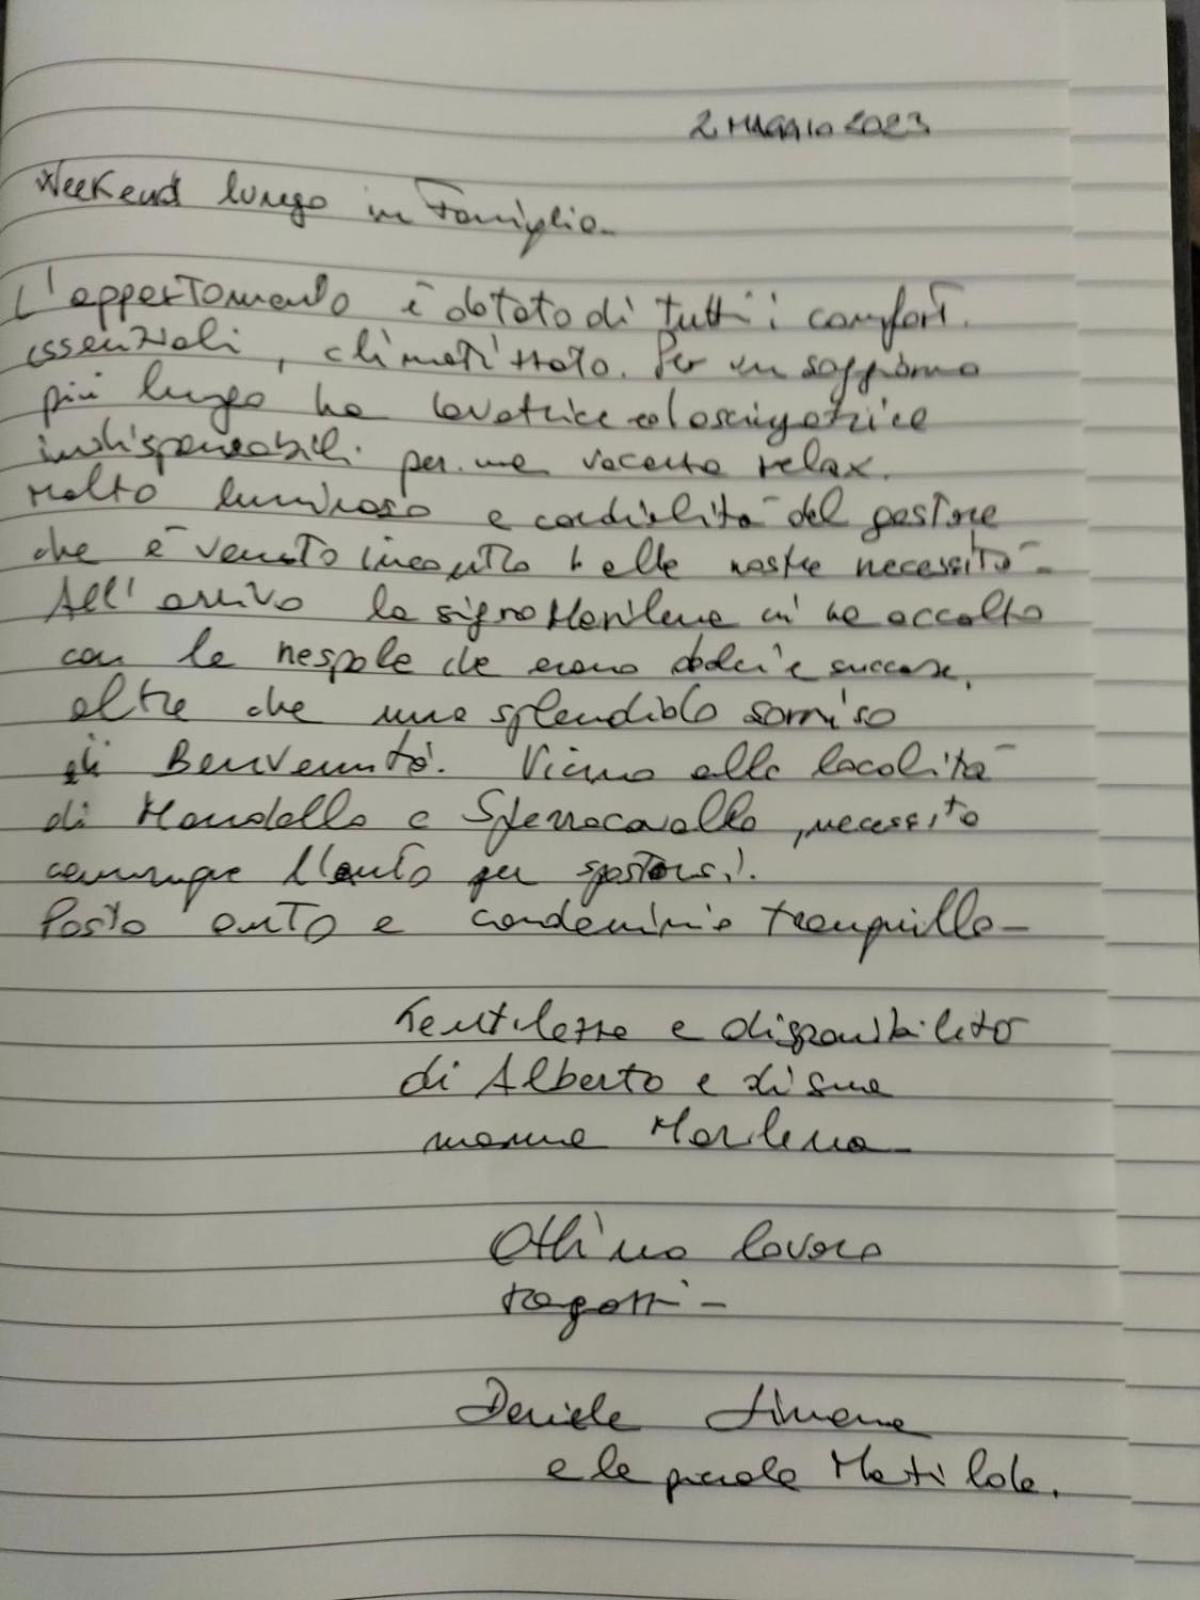 2 MAGGIO 2023
Weekend lungo in Famiglia-
L'appartamento è dotato di tutti i comfort.
essenziali, climatizzato. Per un soggiorno
più lungo ha lavatrice ed asciugatrice
indispensabili per una vacanza relax.
Molto luminoso e cordialità del gestore
che è venuto incontro alle nostre necessità-
All'arrivo la sigra Marilena ci ha accolto
con le nespole che erano dolci e succose,
oltre che uno splendido sorriso
di Benvenuto. Vicino alla località
di Mondello e Sferracavallo, necessita
comunque l'auto per spostarsi.
Posto auto e condominio tranquillo-
Gentilezza e disponibilità
di Alberto e di sua
mamma Marilena-
Ottimo lavoro
ragazzi-
Daniele Simona
e la piccola Matilde.